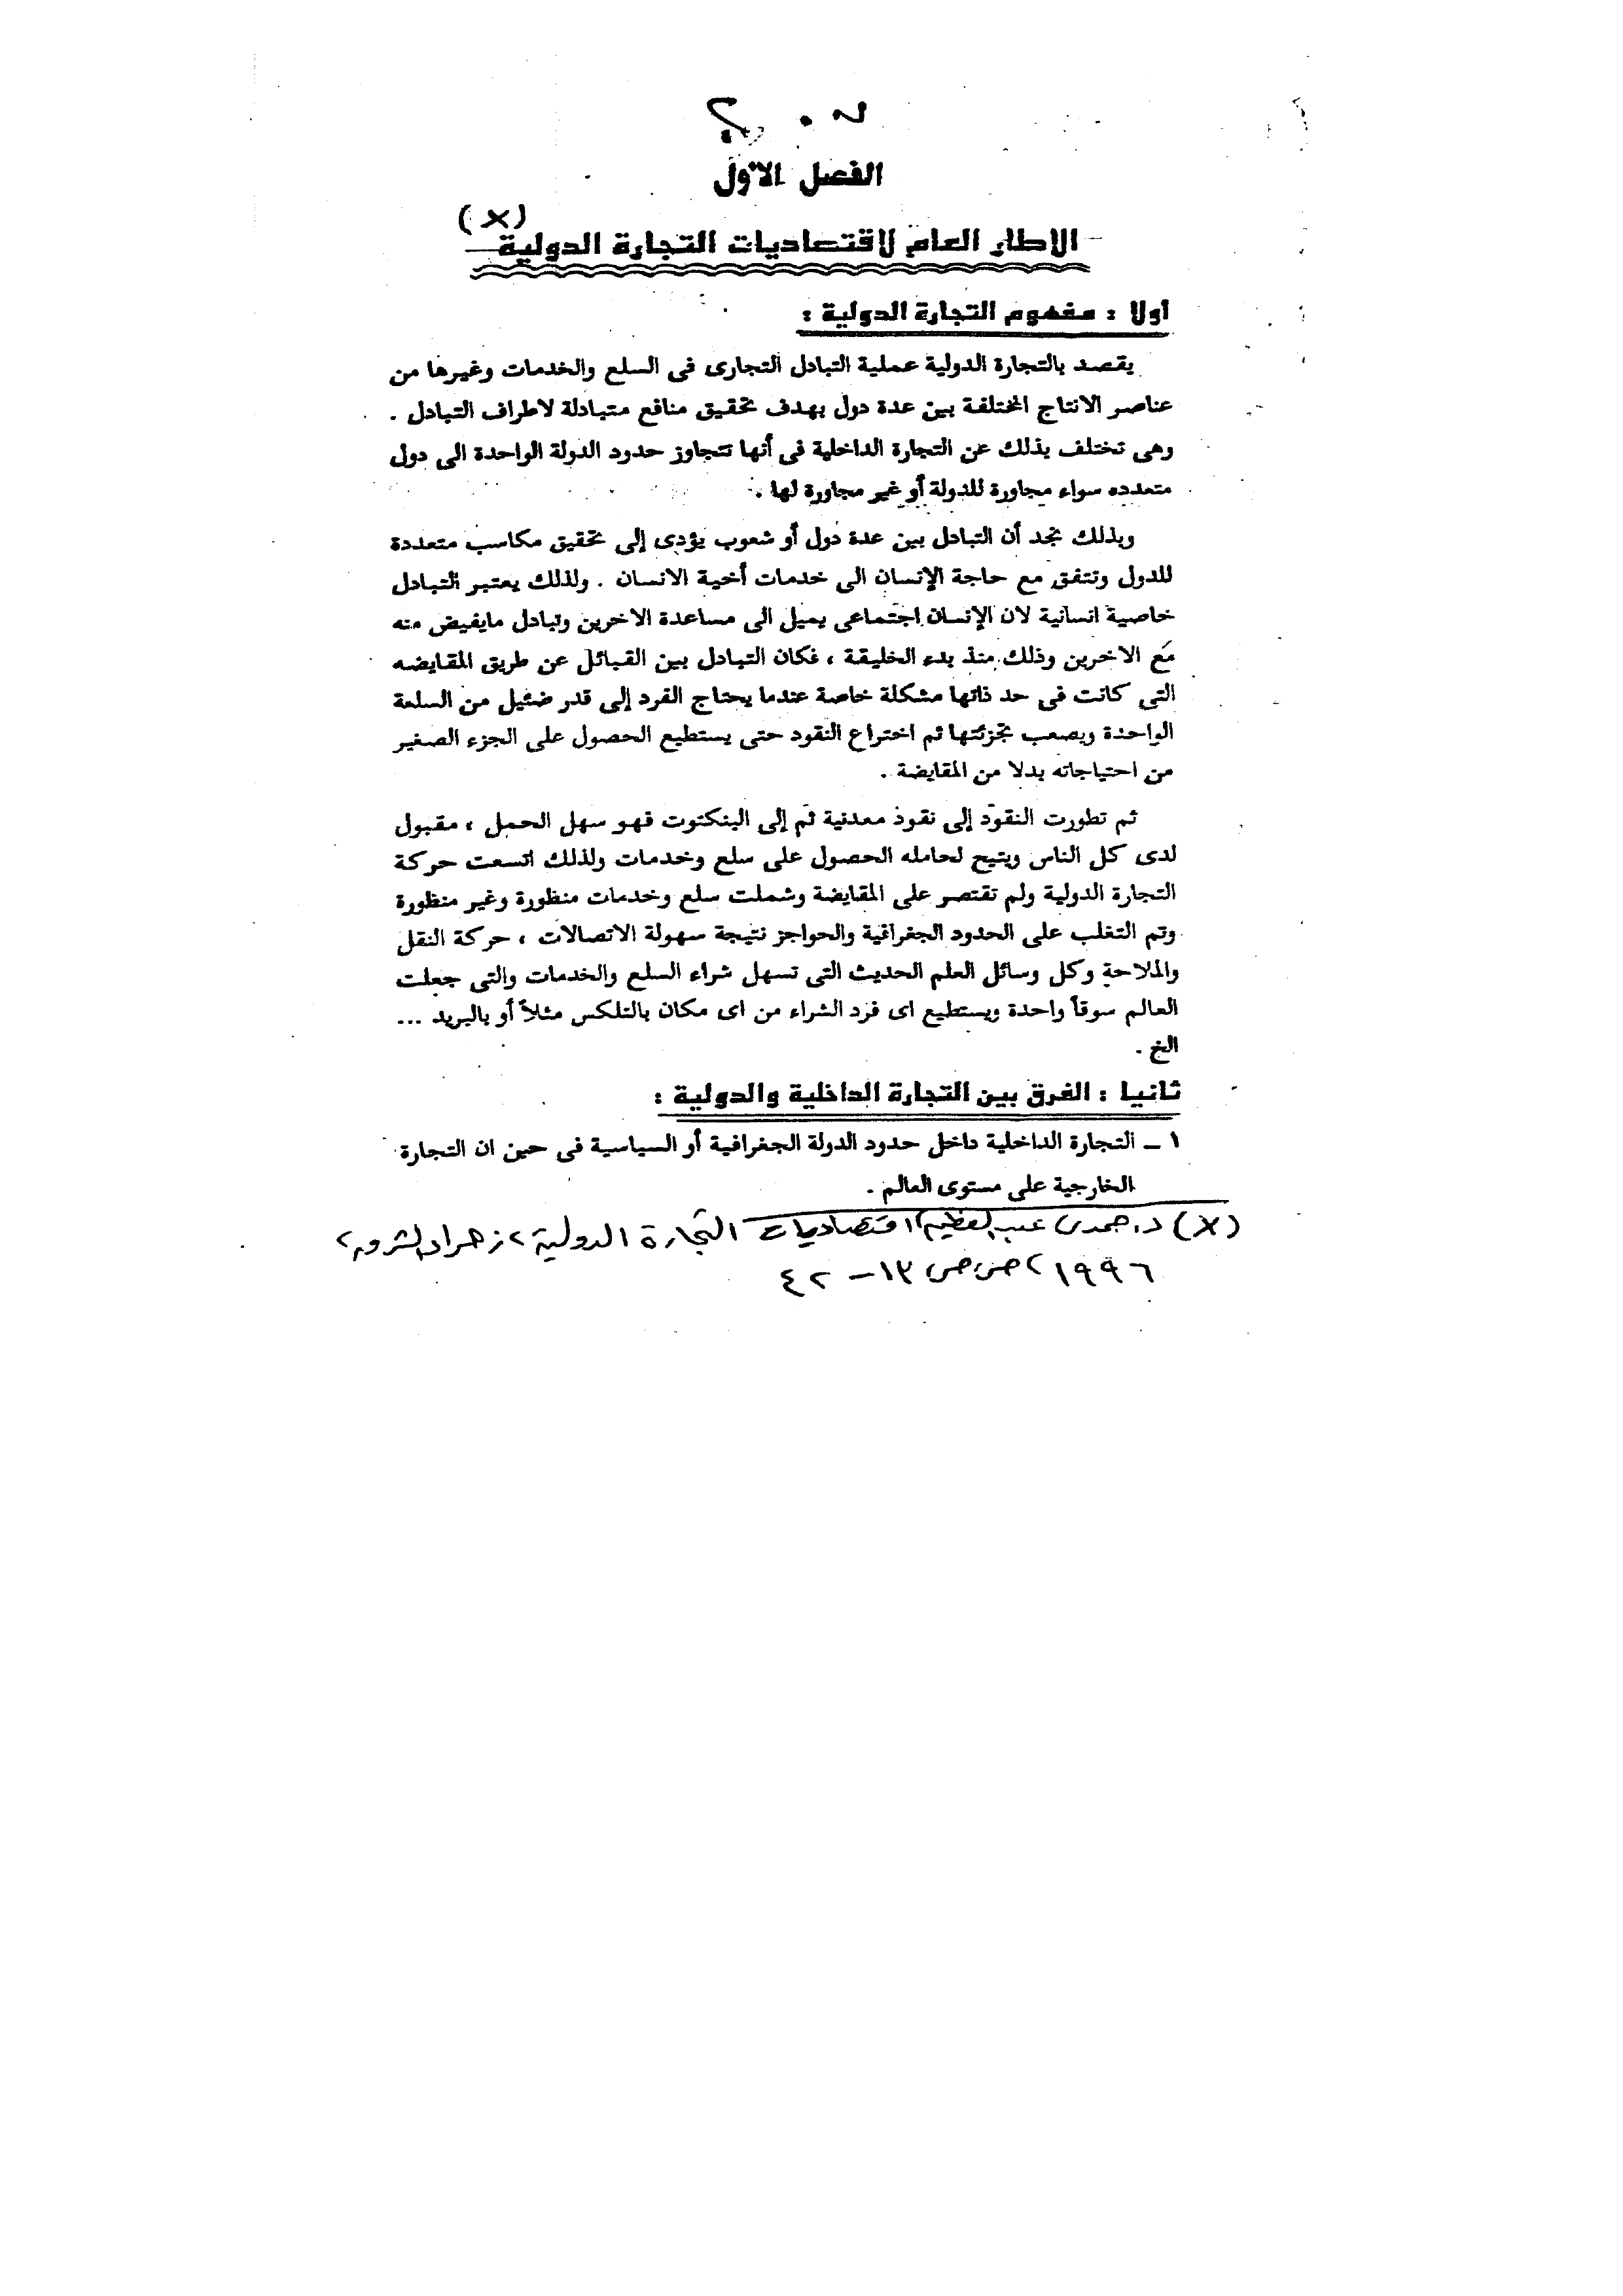 الفصل الأول
الاطار العام لاقتصاديات التجارة الدولية (×)
أولا : مفهوم التجارة الدولية :
يقصد بالتجارة الدولية عملية التبادل التجارى فى السلع والخدمات وغيرها من
عناصر الانتاج المختلفة بين عدة دول بهدف تحقيق منافع متبادلة لاطراف التبادل .
وهى تختلف بذلك عن التجارة الداخلية فى أنها تتجاوز حدود الدولة الواحدة الى دول
متعدده سواء مجاورة للدولة أو غير مجاورة لها .
وبذلك نجد أن التبادل بين عدة دول أو شعوب يؤدى إلى تحقيق مكاسب متعددة
للدول وتتفق مع حاجة الإنسان الى خدمات أخية الانسان . ولذلك يعتبر التبادل
خاصية انسانية لان الإنسان اجتماعى يميل الى مساعدة الاخرين وتبادل مايفيض منه
مع الاخرين وذلك منذ بدء الخليقة ، فكان التبادل بين القبائل عن طريق المقايضه
التى كانت فى حد ذاتها مشكلة خاصة عندما يحتاج الفرد إلى قدر ضئيل من السلعة
الواحدة ويصعب تجزئتها ثم اختراع النقود حتى يستطيع الحصول على الجزء الصغير
من احتياجاته بدلا من المقايضة .
ثم تطورت النقود إلى نقود معدنية ثم إلى البنكنوت فهو سهل الحمل ، مقبول
لدى كل الناس ويتيح لحامله الحصول على سلع وخدمات ولذلك اتسعت حركة
التجارة الدولية ولم تقتصر على المقايضة وشملت سلع وخدمات منظورة وغير منظورة
وتم التغلب على الحدود الجغرافية والحواجز نتيجة سهولة الاتصالات ، حركة النقل
والملاحة وكل وسائل العلم الحديث التى تسهل شراء السلع والخدمات والتى جعلت
العالم سوقاً واحدة ويستطيع اى فرد الشراء من اى مكان بالتلكس مثلاً أو بالبريد ...
الخ .
ثانيا : الفرق بين التجارة الداخلية والدولية :
١ ـ التجارة الداخلية داخل حدود الدولة الجغرافية أو السياسية فى حين ان التجارة
الخارجية على مستوى العالم .
(×) د. حمدى عبد العظيم، اقتصاديات التجارة الدولية، زهراء الشروق،
١٩٩٦، ص ص ١٣ – ٤٢